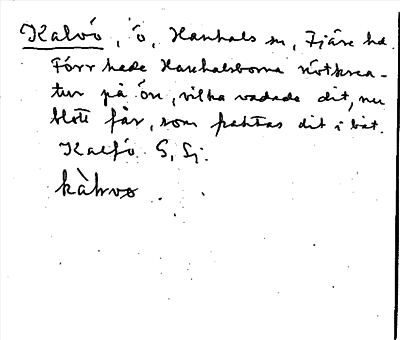 Kalvö, ö, Hanhals sn, Fjäre hd.
Förr hade Hanhalsborna nötkrea-
tur på ön, vilka vadade dit, nu
blott får, som fraktas dit i båt.
Kalfö G, Sj.
kàlvo